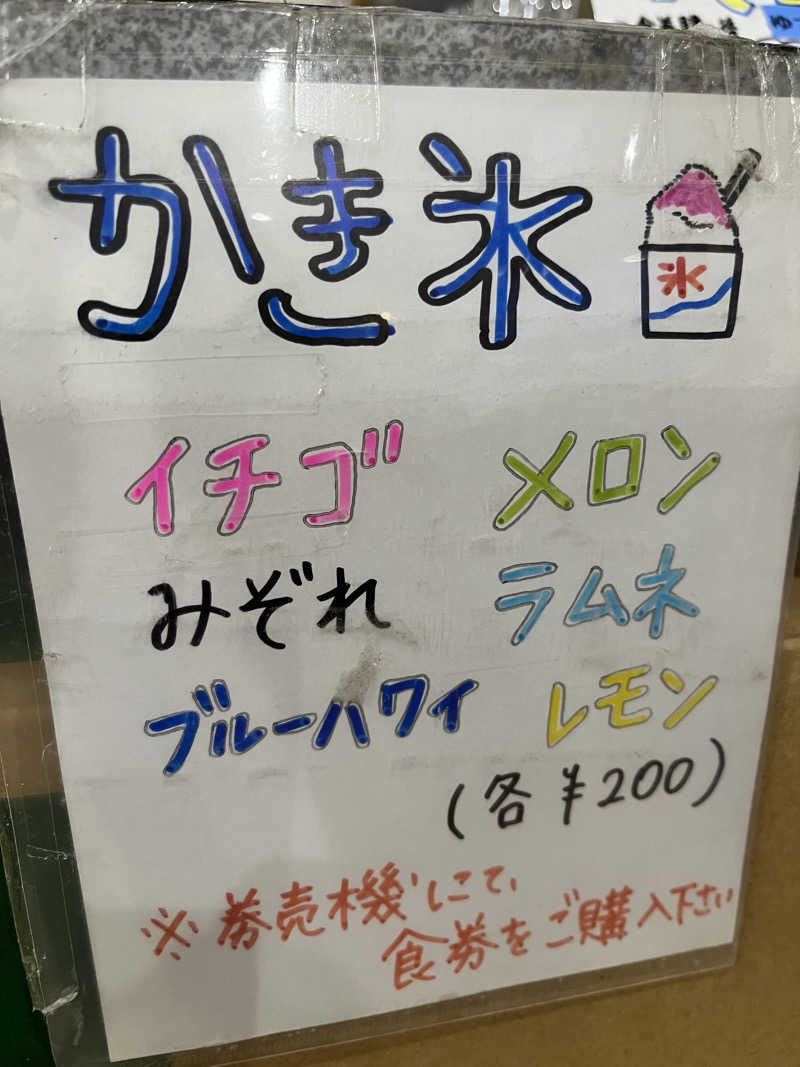 かき氷
氷
イチゴ メロン
みぞれ ラムネ
ブルーハワイ レモン
(各¥200)
※券売機にて、
食券をご購入下さい